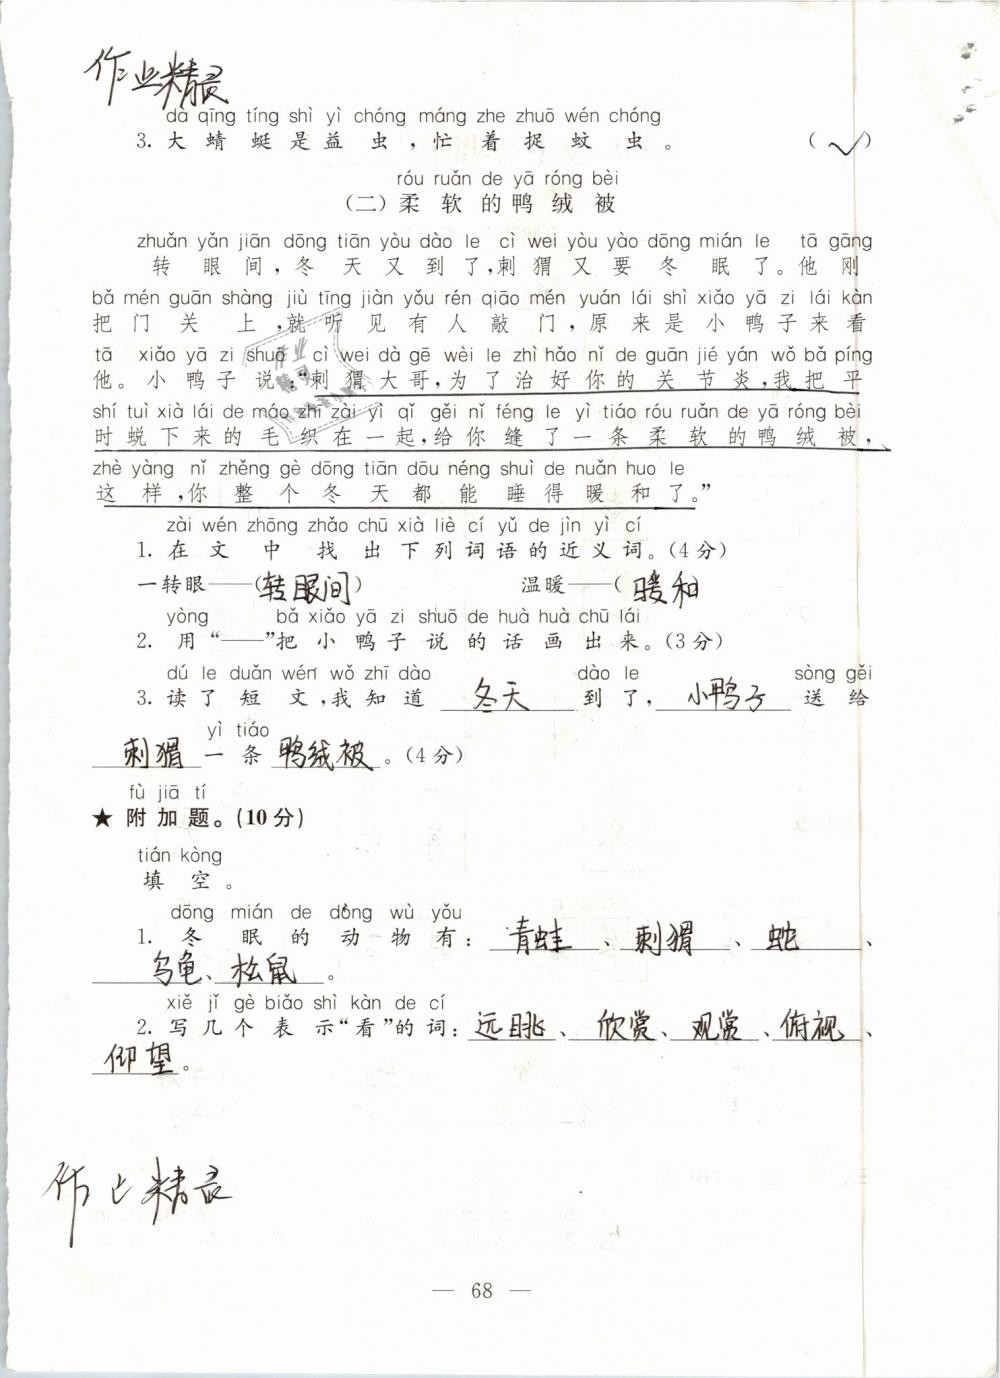 作业精灵
dà qīng tíng shì yì chóng máng zhe zhuō wén chóng
3. 大蜻蜓是益虫,忙着捉蚊虫。 (✓)
róu ruǎn de yā róng bèi
(二) 柔软的鸭绒被
zhuǎn yǎn jiān dōng tiān yòu dào le cì wei yòu yào dōng mián le tā gāng
转眼间,冬天又到了,刺猬又要冬眠了。他刚
bǎ mén guān shàng jiù tīng jiàn yǒu rén qiāo mén yuán lái shì xiǎo yā zi lái kàn
把门关上,就听见有人敲门,原来是小鸭子来看
tā xiǎo yā zi shuō cì wei dà gē wèi le zhì hǎo nǐ de guān jié yán wǒ bǎ píng
他。小鸭子说:“刺猬大哥,为了治好你的关节炎,我把平
shí tuì xià lái de máo zhī zài yì qǐ gěi nǐ féng le yì tiáo róu ruǎn de yā róng bèi
时蜕下来的毛织在一起,给你缝了一条柔软的鸭绒被,
zhè yàng nǐ zhěng gè dōng tiān dōu néng shuì de nuǎn huo le
这样,你整个冬天都能睡得暖和了。”
zài wén zhōng zhǎo chū xià liè cí yǔ de jìn yì cí
1. 在文中找出下列词语的近义词。(4分)
一转眼——(转眼间) 温暖——(暖和
yòng bǎ xiǎo yā zi shuō de huà huà chū lái
2. 用“——”把小鸭子说的话画出来。(3分)
dú le duǎn wén wǒ zhī dào dào le sòng gěi
3. 读了短文,我知道 冬天 到了, 小鸭子 送给
yì tiáo
刺猬 一条 鸭绒被 。(4分)
fù jiā tí
★ 附加题。(10分)
tián kòng
填空。
dōng mián de dòng wù yǒu
1. 冬眠的动物有: 青蛙 、 刺猬 、 蛇 、
乌龟、松鼠 。
xiě jǐ gè biǎo shì kàn de cí
2. 写几个表示“看”的词: 远眺 、 欣赏 、 观赏 、 俯视 、
仰望 。
作业精灵
— 68 —